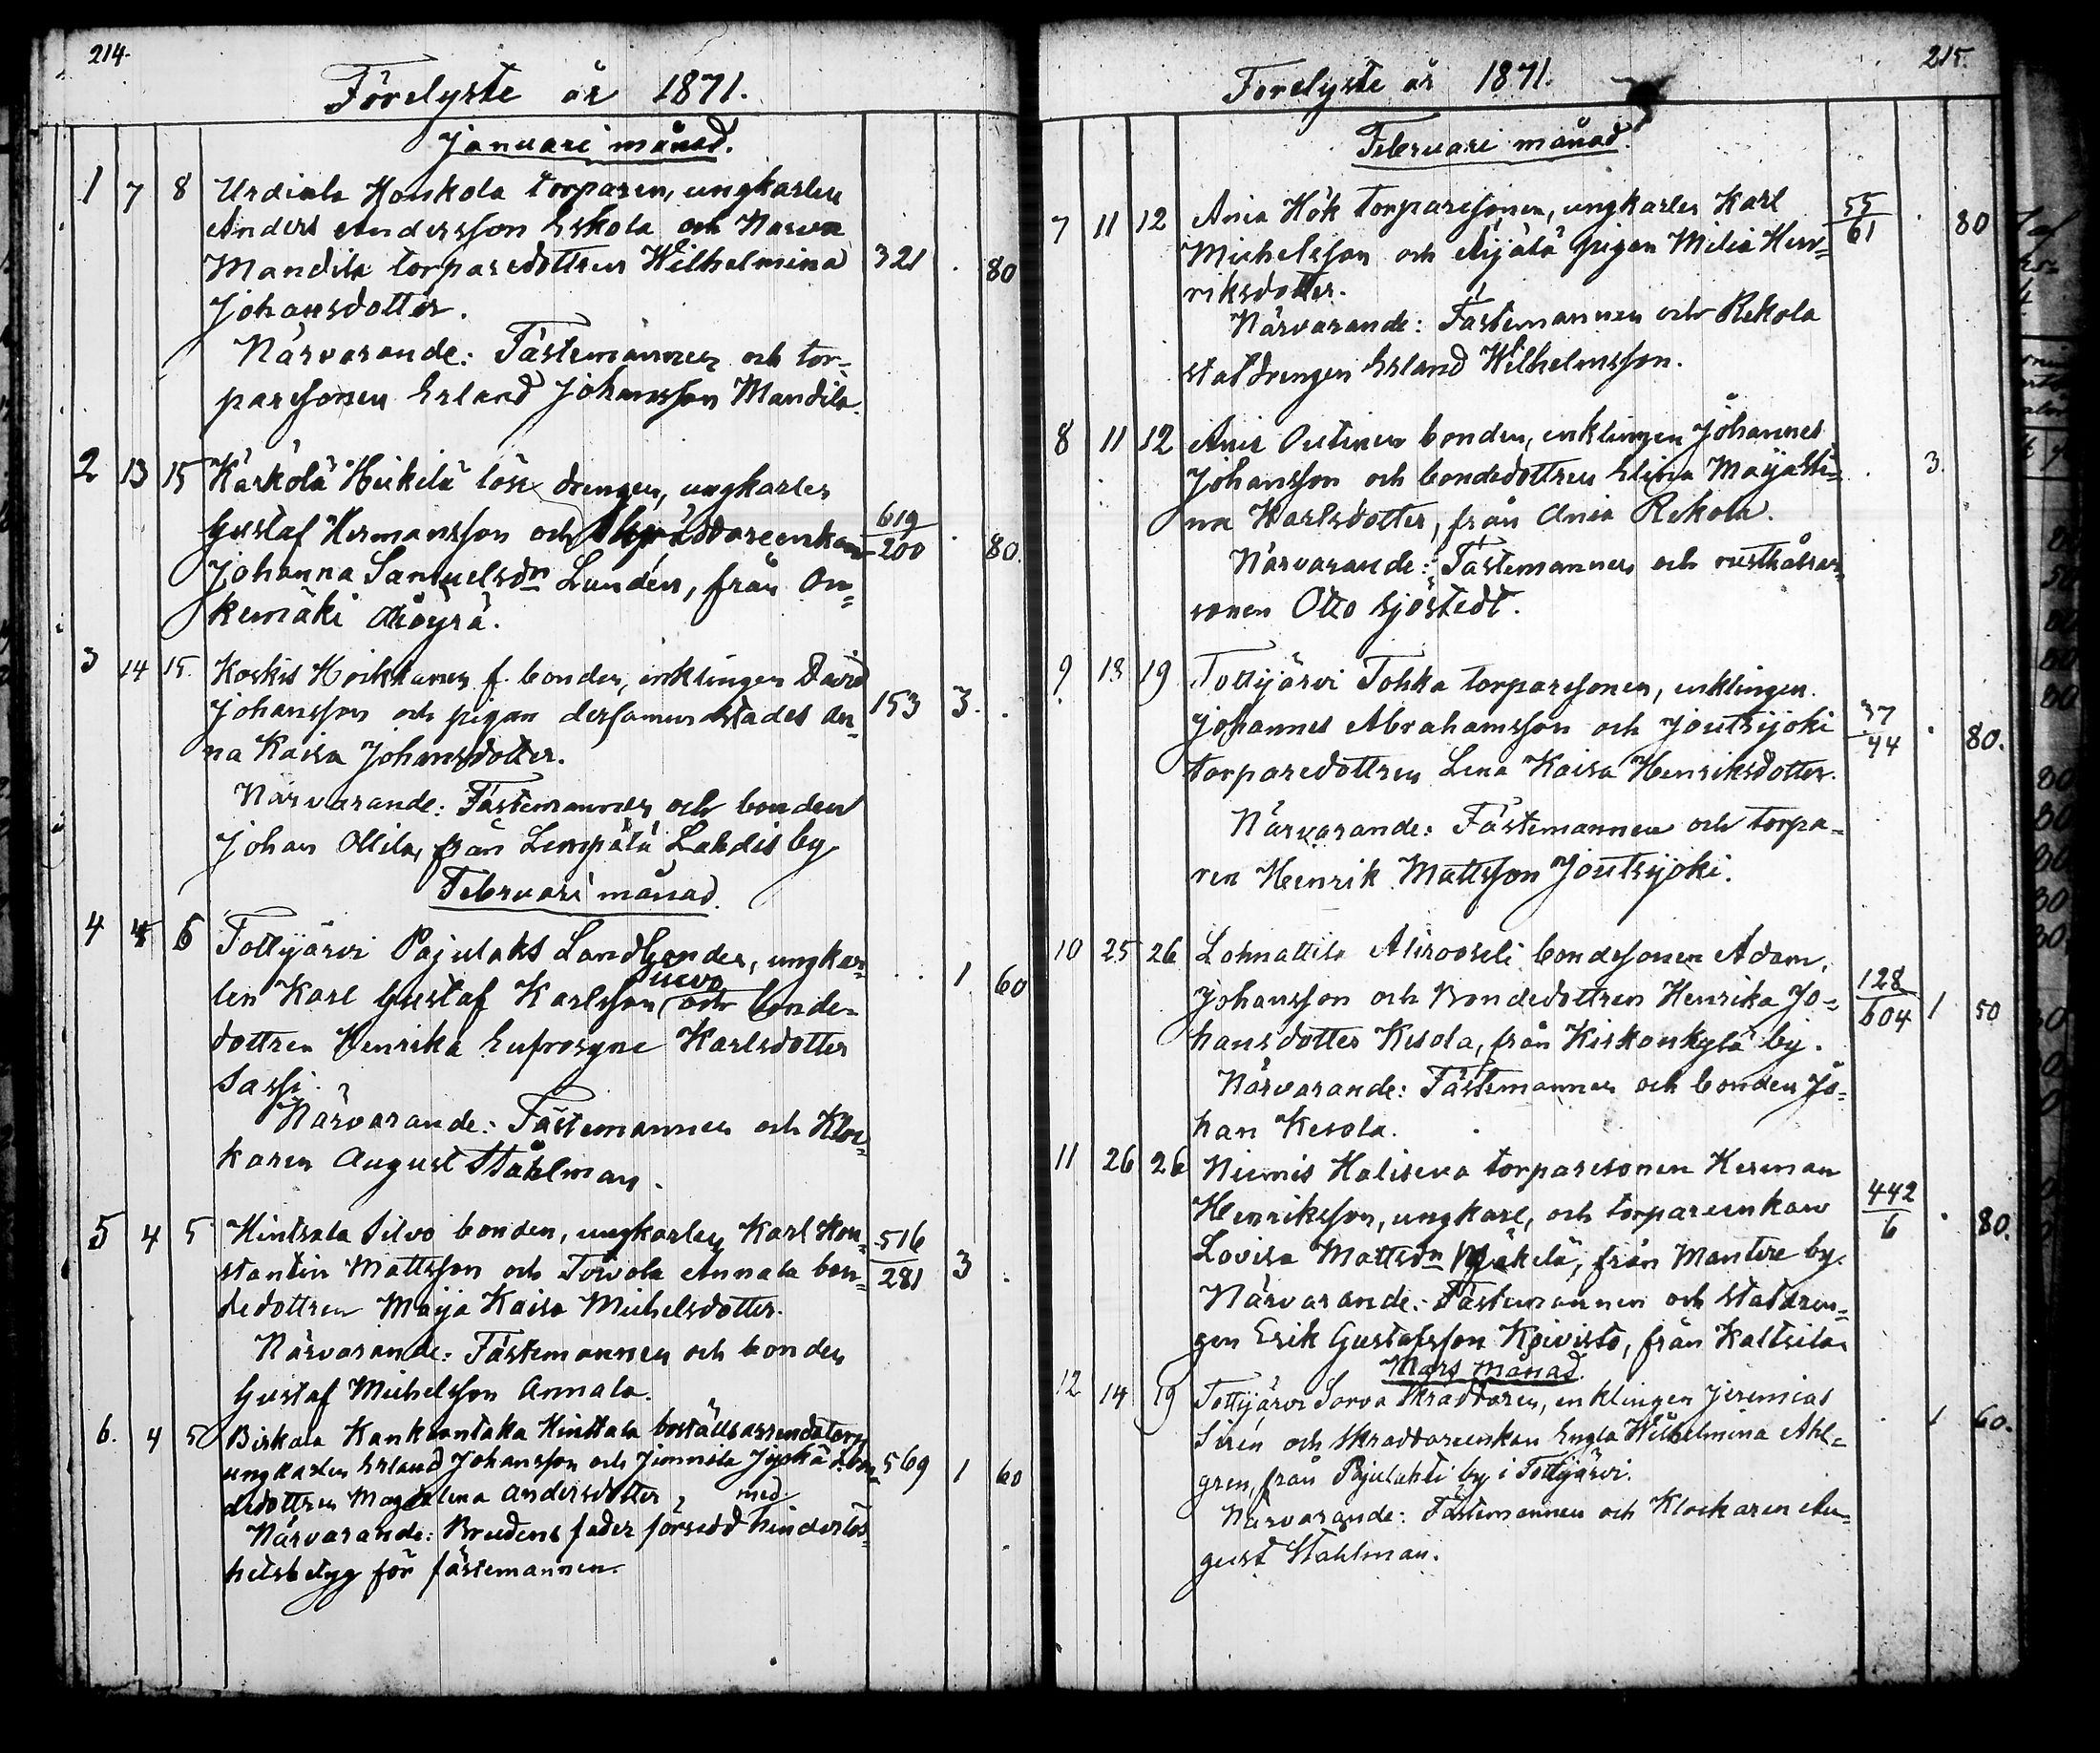 214.
Förelyste år 1871.
Januari månad.
1 7 8 Urdiala Honkola torparen, ungkarlen
Anders Andersson Eskola och Narva
Mandila torparedottren Wilhelmina 321 . 80
Johansdotter.
Närvarande: Fästemannen och tor-
paresonen Erland Johansson Mandila.
2 13 15 Kärkölä Heikilä löse drengen, ungkarlen
Gustaf Hermansson och enkan 619/200 . 80.
Johanna Samuelsdn Lundén, från On-
kemäki Äiöyrä.
3 14 15. Koskis Heikkanen f. bonden, enklingen David
Johansson och pigan dersammastädes An- 153 3. .
na Kaisa Johansdotter.
Närvarande: Fästemannen och bonden
Johan Ollila, från Lempälä Lahdis by
Februari månad.
4 4 5 Tottijärvi Pajulaks Landbonden, ungkar-
Suevo 1 60
len Karl Gustaf Karlsson och bonde-
dottren Henrika Eufrosyne Karlsdotter
Sassi.
Närvarande: Fästemannen och Kloc-
karen August Ståhlman.
5 4 5 Hintsala Silvo bonden, ungkarlen Karl Kon- 516/281 3 .
stantin Mattsson och Toivola Annala bon-
dedottren Maija Kaisa Michelsdotter.
Närvarande: Fästemannen och bonden
Gustaf Michelsson Annala.
6. 4 5 Birkala Kankaantaka Hinttala boställsarrendatorn
ungkarlen Erland Johansson och Jumula bon- 569 1 60
dedottren Magdalena Andersdotter
med
Närvarande: Brudens fader försedd hinderlös-
hetsbetyg för fästemannen.
215.
Förelyste år 1871.
Februari månad.
7 11 12 Ania Hök torparesonen, ungkarlen Karl 55/61 . 80
Michelsson och Äijälä pigan Milia Hen-
riksdotter.
Närvarande: Fästemannen och Rekola
statdrengen Erland Wilhelmsson.
8 11 12 Ania Outinen bonden, enklingen Johannes
Johansson och bondedottren Elina Majasti- . 3.
na Karlsdotter, från Ania Rekola.
Närvarande: Fästemannen och rusthållar-
sonen Otto Sjöstedt.
9 18 19 Tottijärvi Tohka torparesonen, enklingen
Johannes Abrahamsson och Joutsijoki 37/44 . 80.
torparedottren Lena Kaisa Henriksdotter.
Närvarande: Fästemannen och torpa-
ren Henrik Mattsson Joutsijoki.
10 25 26 Lohnattila Alirooseli bondesonen Adam
Johansson och Bondedottren Henrika Jo- 128/604 1 50
hansdotter Kesola, från Kirkonkylä by.
Närvarande: Fästemannen och bonden Jo-
han Kesola.
11 26 26 Niemis Haliseva torparesonen Herman
Henriksson, ungkarl, och torpareenkan 442/6 . 80.
Lovisa Mattsdn Mäkelä, från Mantere by.
Närvarande: Fästemannen och statdren-
gen Erik Gustafsson Koivisto, från Kaltsila
Mars månad.
12 14 19 Tottijärvi Sorva Skräddaren, enklingen Jeremias
Sirén och Skräddareenkan Engla Wilhelmina Ahl- . 1 60.
gren, från Pajulahti by i Tottijärvi.
Närvarande: Fästemannen och Klockaren Au-
gust Ståhlman.